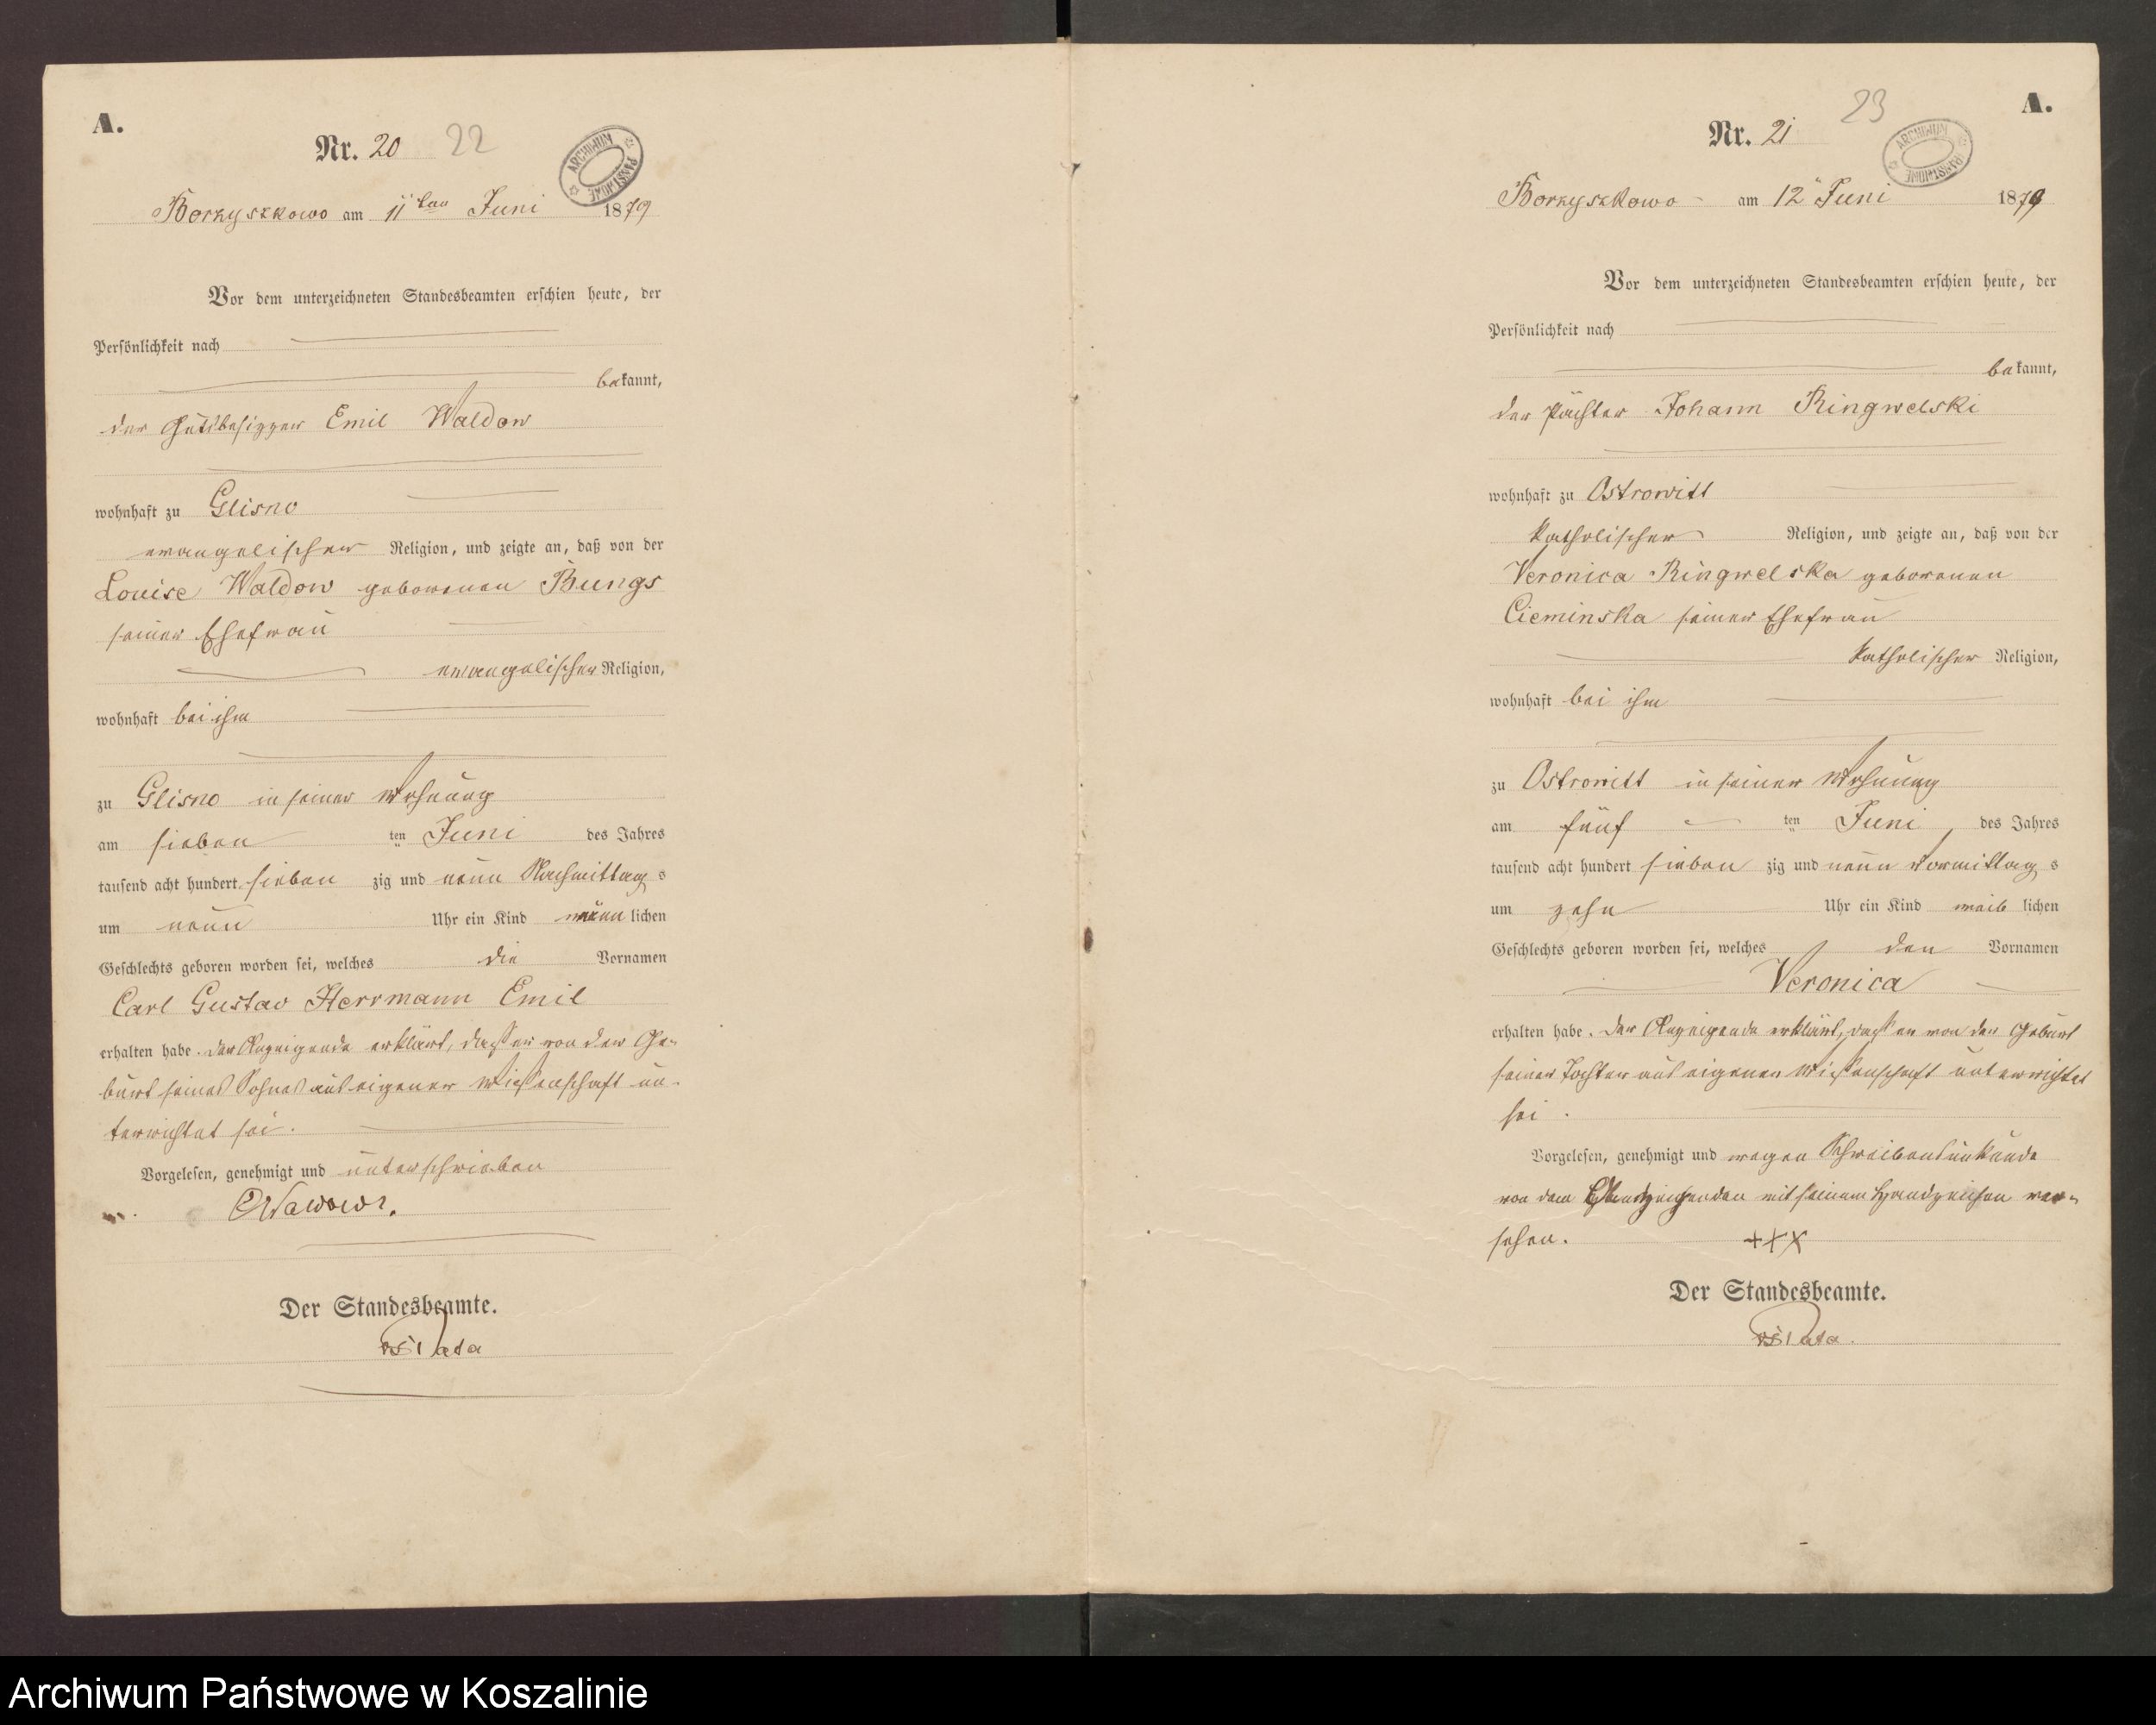 A.
Nr. 20 22
ARCHIWUM PAŃSTWOWE
Borzyszkowo am 11ten Juni 1879
Vor dem unterzeichneten Standesbeamten erschien heute, der
Persönlichkeit nach
bekannt,
der Gutsbesitzer Emil Waldow
wohnhaft zu Glisno
evangelischer Religion, und zeigte an, daß von der
Louise Waldow geborenen Bungs
seiner Ehefrau
evangelischer Religion,
wohnhaft bei ihm
zu Glisno in seiner Wohnung
am sieben ten Juni des Jahres
tausend acht hundert sieben zig und neun Nachmittag s
um neun Uhr ein Kind männ lichen
Geschlechts geboren worden sei, welches die Vornamen
Carl Gustav Herrmann Emil
erhalten habe. Der Anzeigende erklärt, dass er von der Ge-
burt seines Sohnes aus eigener Wissenschaft un-
terrichtet sei.
Vorgelesen, genehmigt und unterschrieben
Der Standesbeamte.
A.
Nr. 21 23
ARCHIWUM PAŃSTWOWE
Borzyszkowo am 12 Juni 1879
Vor dem unterzeichneten Standesbeamten erschien heute, der
Persönlichkeit nach
bekannt,
der Pächter Johann Ringwelski
wohnhaft zu Ostrowitt
katholischer Religion, und zeigte an, daß von der
Veronica Ringwelska geborenen
Cieminska seiner Ehefrau
katholischer Religion,
wohnhaft bei ihm
zu Ostrowitt in seiner Wohnung
am fünf ten Juni des Jahres
tausend acht hundert sieben zig und neun Vormittag s
um zehn Uhr ein Kind weib lichen
Geschlechts geboren worden sei, welches den Vornamen
Veronica
erhalten habe. Der Anzeigende erklärt, dass er von der Geburt
seiner Tochter aus eigener Wissenschaft unterrichtet
sei.
Vorgelesen, genehmigt und wegen Schreibensunkunde
von dem Anzeigenden mit seinem Handzeichen ver-
sehen. +++
Der Standesbeamte.
Archiwum Państwowe w Koszalinie